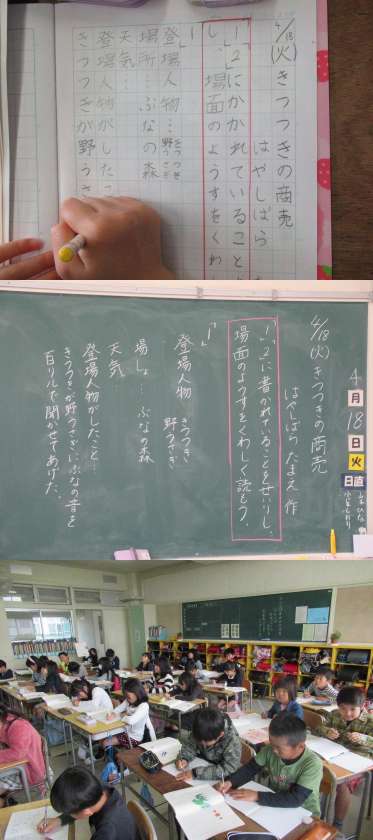 4/18(火)きつつきの商売
はやしばら
「1」「2」にかかれていること
し、場面のようすをくわ
「1」
登場人物…きつつき
野うさぎ
場所…ぶなの森
天気…
登場人物がしたこ
きつつきが野うさ
4月18日火
日直
4/18(火)きつつきの商売
はやしばらたまえ作
「1」「2」に書かれていることをせいりし、
場面のようすをくわしく読もう。
「1」
登場人物 きつつき
野うさぎ
場しょ…ぶなの森
天気…
登場人物がしたこと…
きつつきが野うさぎに、ぶなの音を
百リルで聞かせてあげた。